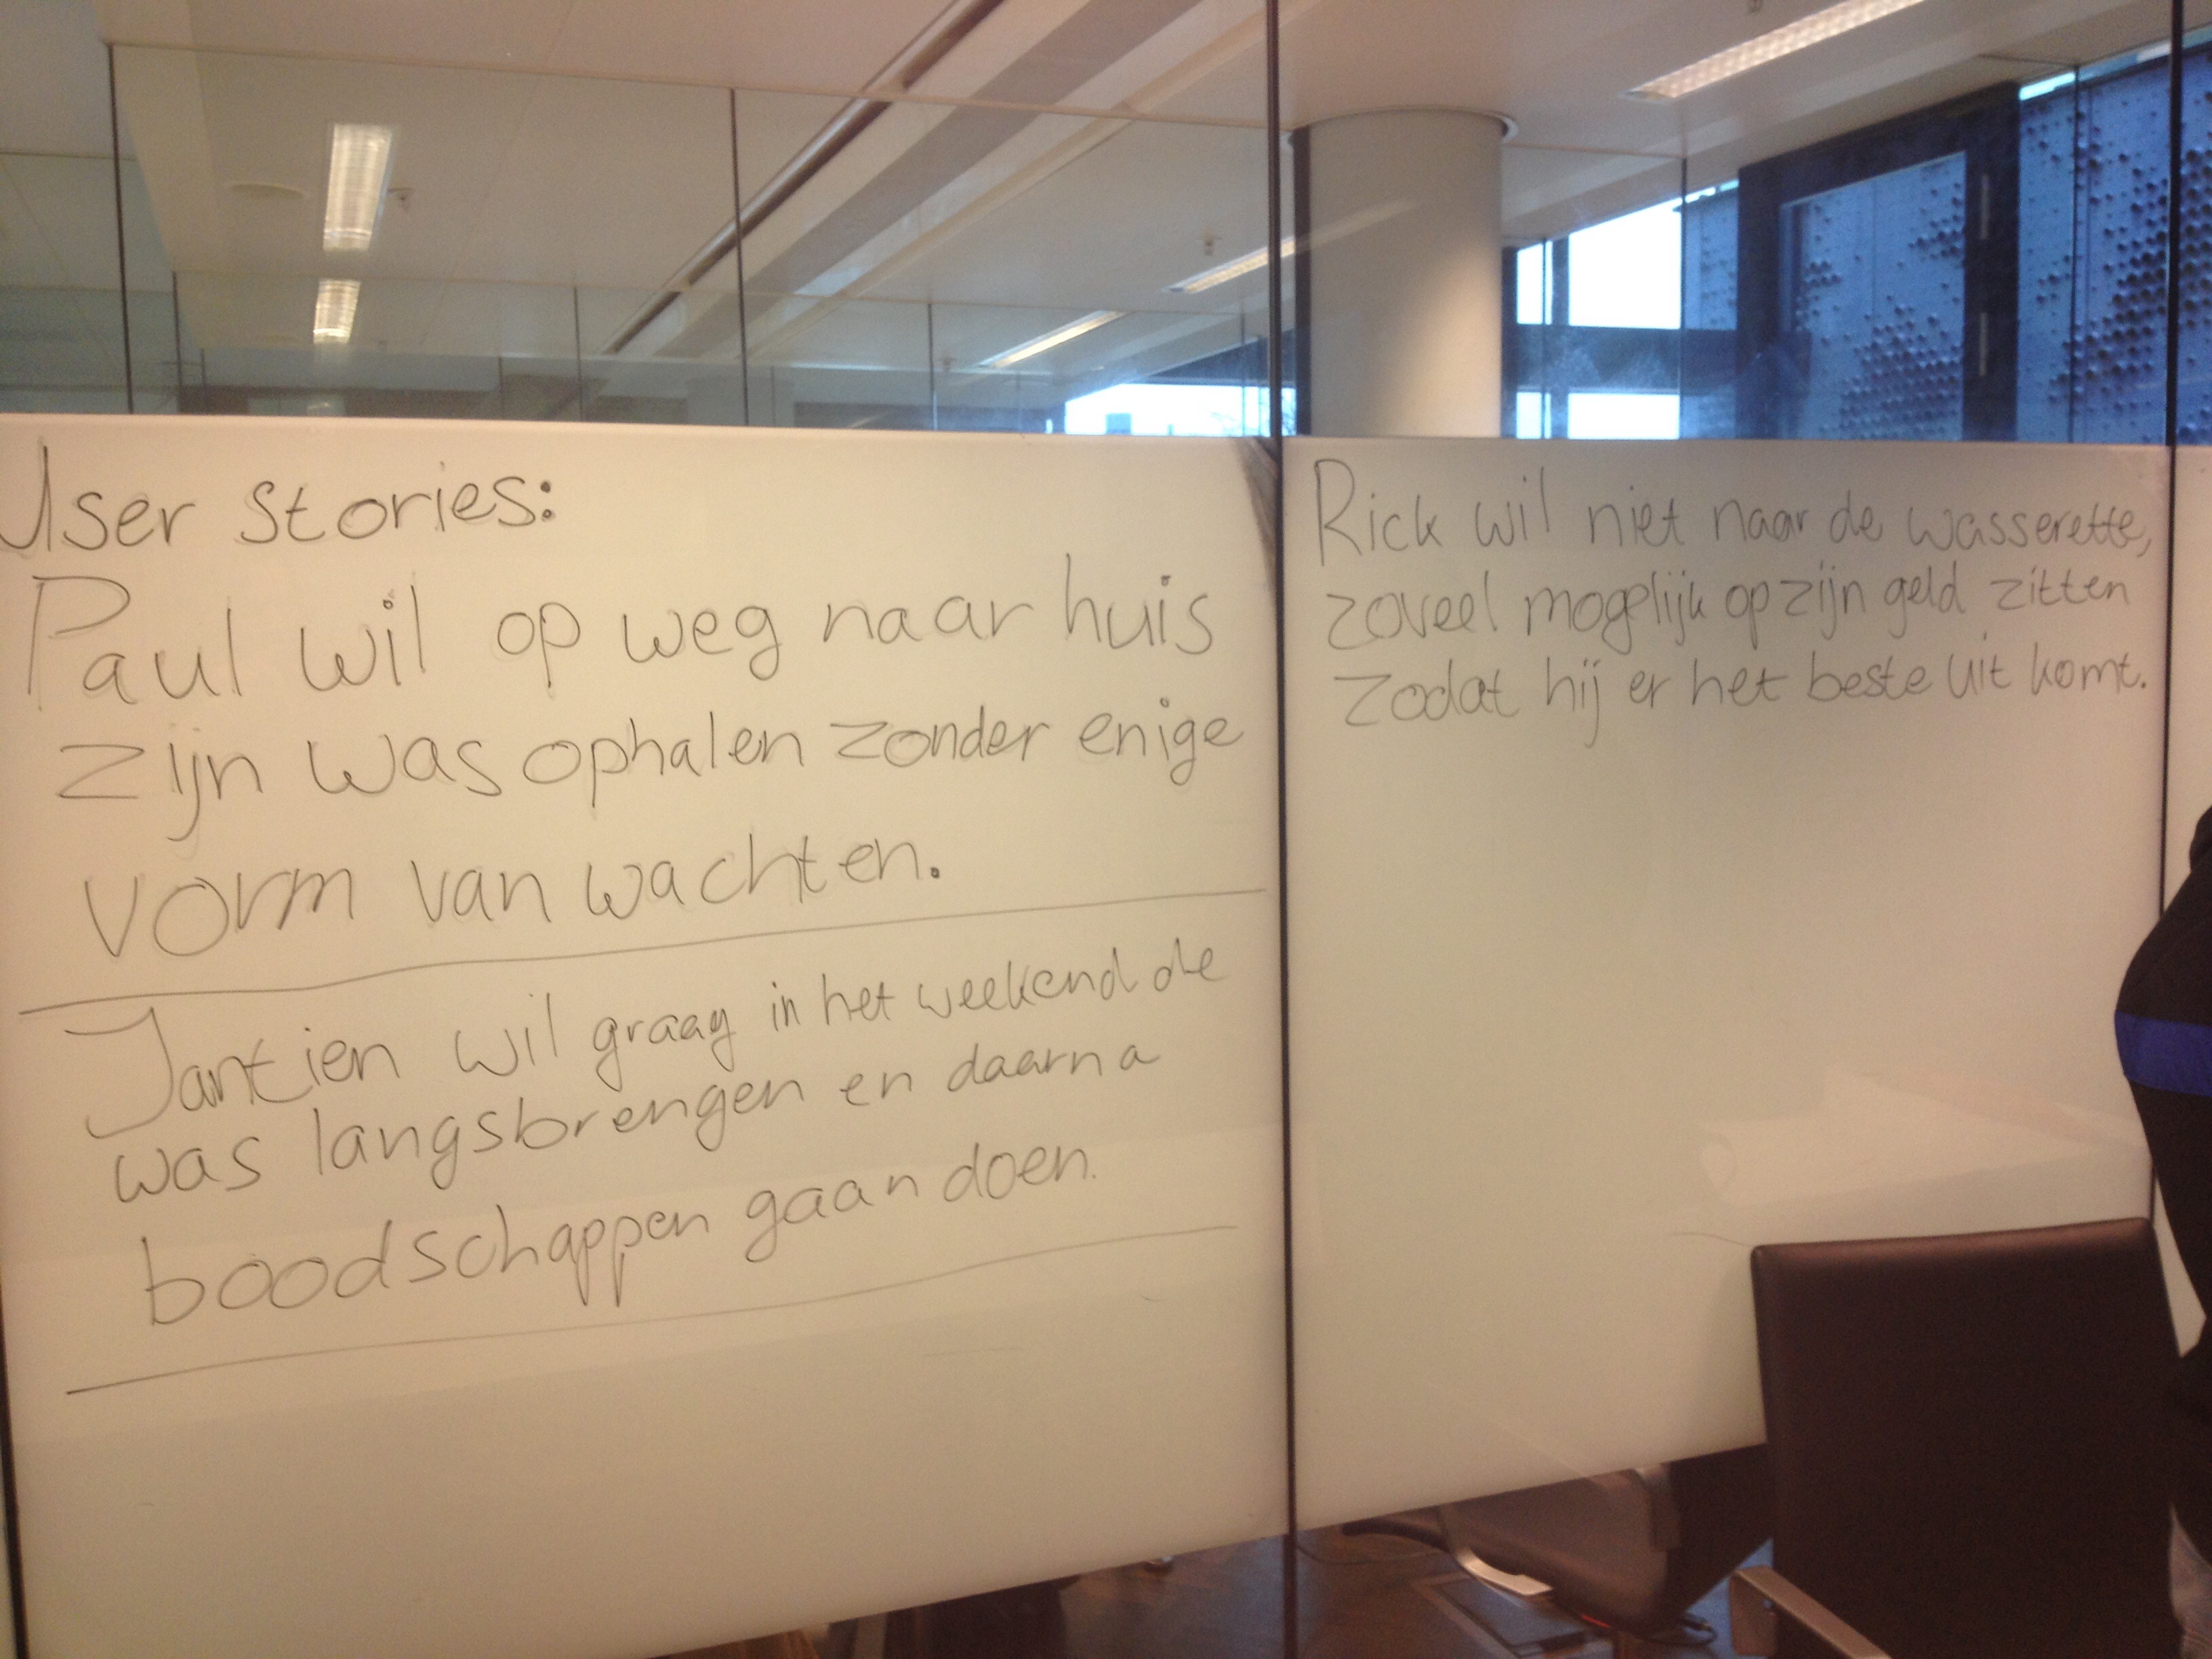 User stories:
Paul wil op weg naar huis
zijn was ophalen zonder enige
vorm van wachten.
Jantien wil graag in het weekend de
was langsbrengen en daarna
boodschappen gaan doen.
Rick wil niet naar de wasserette,
zoveel mogelijk op zijn geld zitten
zodat hij er het beste uit komt.